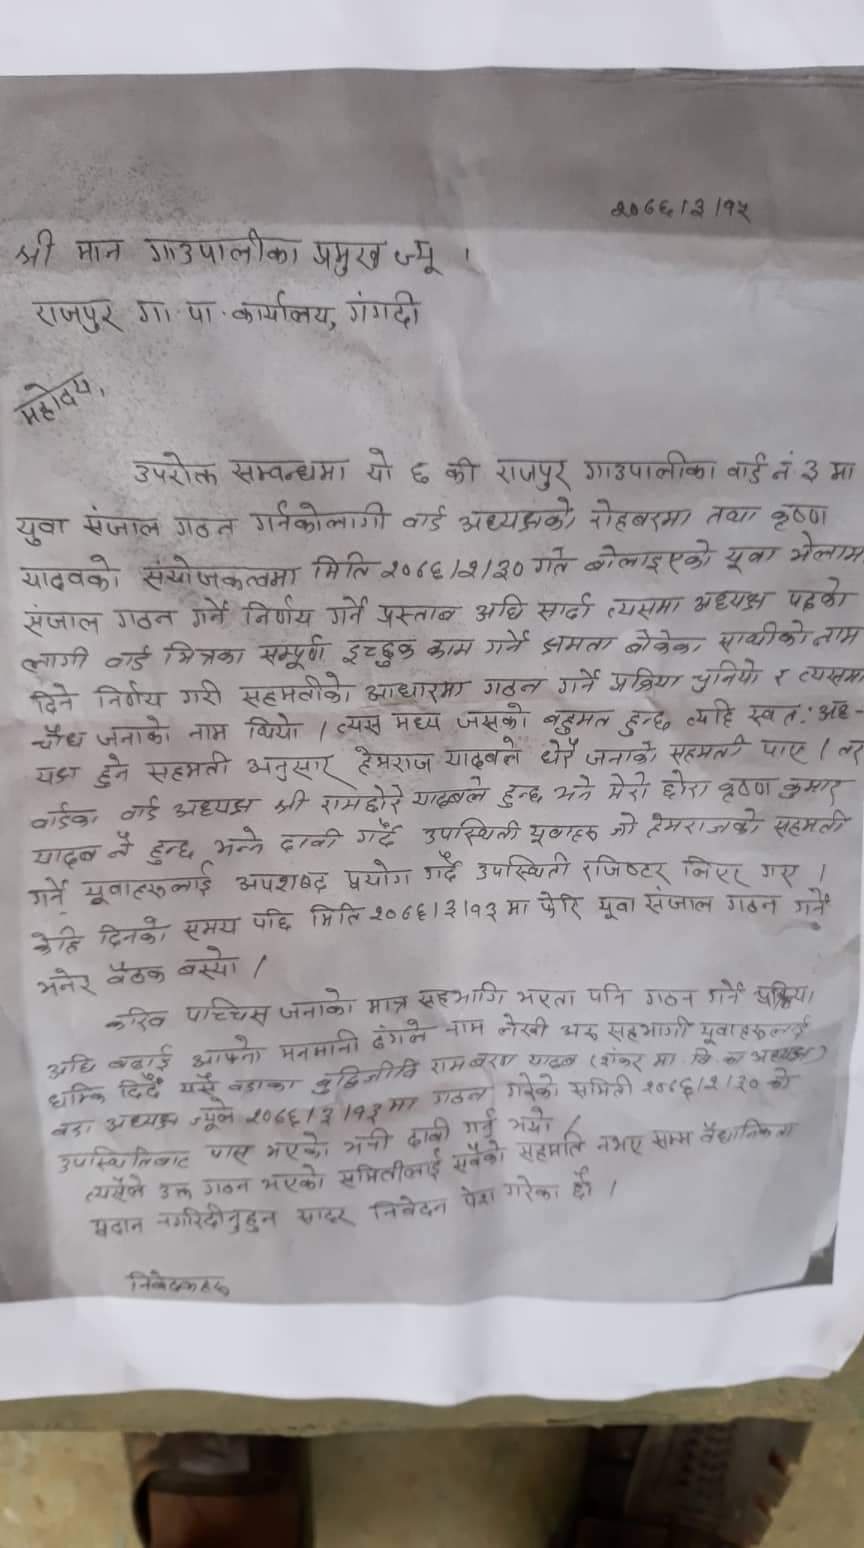 २०७६।३।१५
श्री मान गाउपालीका प्रमुख ज्यू ।
राजपुर गा. पा. कार्यालय, गंगदी
महोदय,
उपरोक्त सम्वन्धमा यो ६ की राजपुर गाउपालीका वार्ड नं. ३ मा
युवा संजाल गठन गर्नकोलागी वार्ड अध्यक्षको रोहबरमा तथा कृष्ण
यादवको संयोजकत्वमा मिति २०७६।२।३० गते बोलाइएको यूवा भेलाम
संजाल गठन गर्ने निर्णय गर्ने प्रस्ताब अघि सार्दा त्यसमा अध्यक्ष पदको
लागी वार्ड भित्रका सम्पूर्ण इच्छुक काम गर्ने क्षमता बोकेका साथीको नाम
दिने निर्णय गरी सहमतीको आधारमा गठन गर्ने प्रक्रिया चुनियो र त्यसमा
चौध जनाको नाम थियो । त्यस मध्य जसको बहुमत हुन्छ त्यहि स्वत: अध-
यक्ष हुने सहमती अनुसार हेमराज यादबले धेरै जनाको सहमती पाए । तर
वार्डका वार्ड अध्यक्ष श्री रामहोरे यादबले हुन्छ भने मेरो छोरा कृष्ण कुमार
यादब नै हुन्छ भन्ने दावी गर्दै उपस्थिती यूवाहरु जो हेमराजको सहमती
गर्ने यूवाहरुलाई अपशब्द प्रयोग गर्दै उपस्थिती रजिष्टर लिएर गए ।
केहि दिनको समय पछि मिति २०७६।३।१३ मा फेरि यूवा संजाल गठन गर्ने
भनेर बैठक बस्यो ।
करिव पाच्चिस जनाको मात्र सहभागि भएता पनि गठन गर्ने प्रक्रिया
अघि बढाई आफ्नो मनमानी ढंगले नाम लेखी अरु सहभागी यूवाहरुलाई
धम्कि दिदै यसै वडाका बुद्धिजीवि रामबरण यादब (शंकर मा. बि. का अध्यक्ष)
वडा अध्यक्ष ज्यूले २०७६।३।१३ मा गठन गरेको समिती २०७६।२।३० को
उपस्थितिबाट पास भएको भनी दावी गर्नु भयो ।
त्यसैले उक्त गठन भएको समितीलाई सबैको सहमति नभए सम्म वैधानिकता
प्रदान नगरिदीनुहुन सादर निवेदन पेश गरेका छौ ।
निवेदकहरु